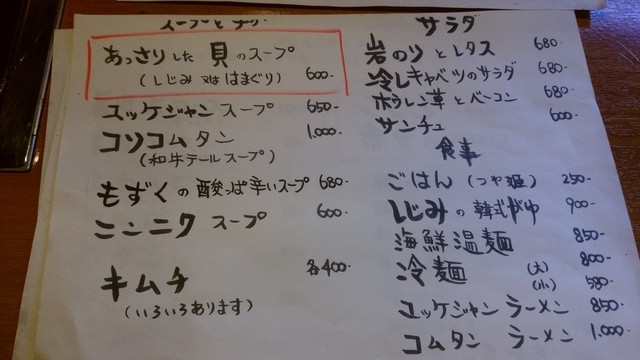 あっさりした 貝のスープ 600-
(しじみ 又は はまぐり)
ユッケジャン スープ 650-
コソコムタン 1,000-
(和牛テールスープ)
もずくの酸っぱ辛いスープ 680-
ニンニク スープ 600-
キムチ 各400-
(いろいろあります)
サラダ
岩のりとレタス 680-
冷しキャベツのサラダ 680-
ホウレン草とベーコン 680-
サンチュ 600-
食事
ごはん (つや姫) 250-
しじみの韓式がゆ 900-
海鮮温麺 850-
冷麺 (大) 800-
(小) 580-
ユッケジャン ラーメン 850-
コムタン ラーメン 1,000-